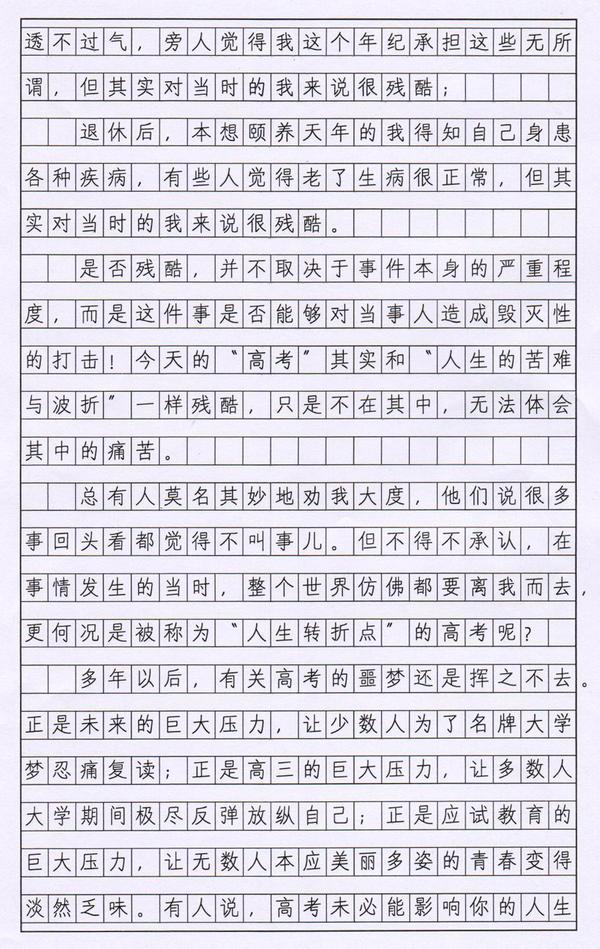 透不过气，旁人觉得我这个年纪承担这些无所
谓，但其实对当时的我来说很残酷；
退休后，本想颐养天年的我得知自己身患
各种疾病，有些人觉得老了生病很正常，但其
实对当时的我来说很残酷。
是否残酷，并不取决于事件本身的严重程
度，而是这件事是否能够对当事人造成毁灭性
的打击！今天的“高考”其实和“人生的苦难
与波折”一样残酷，只是不在其中，无法体会
其中的痛苦。
总有人莫名其妙地劝我大度，他们说很多
事回头看都觉得不叫事儿。但不得不承认，在
事情发生的当时，整个世界仿佛都要离我而去，
更何况是被称为“人生转折点”的高考呢？
多年以后，有关高考的噩梦还是挥之不去。
正是未来的巨大压力，让少数人为了名牌大学
梦忍痛复读；正是高三的巨大压力，让多数人
大学期间极尽反弹放纵自己；正是应试教育的
巨大压力，让无数人本应美丽多姿的青春变得
淡然乏味。有人说，高考未必能影响你的人生